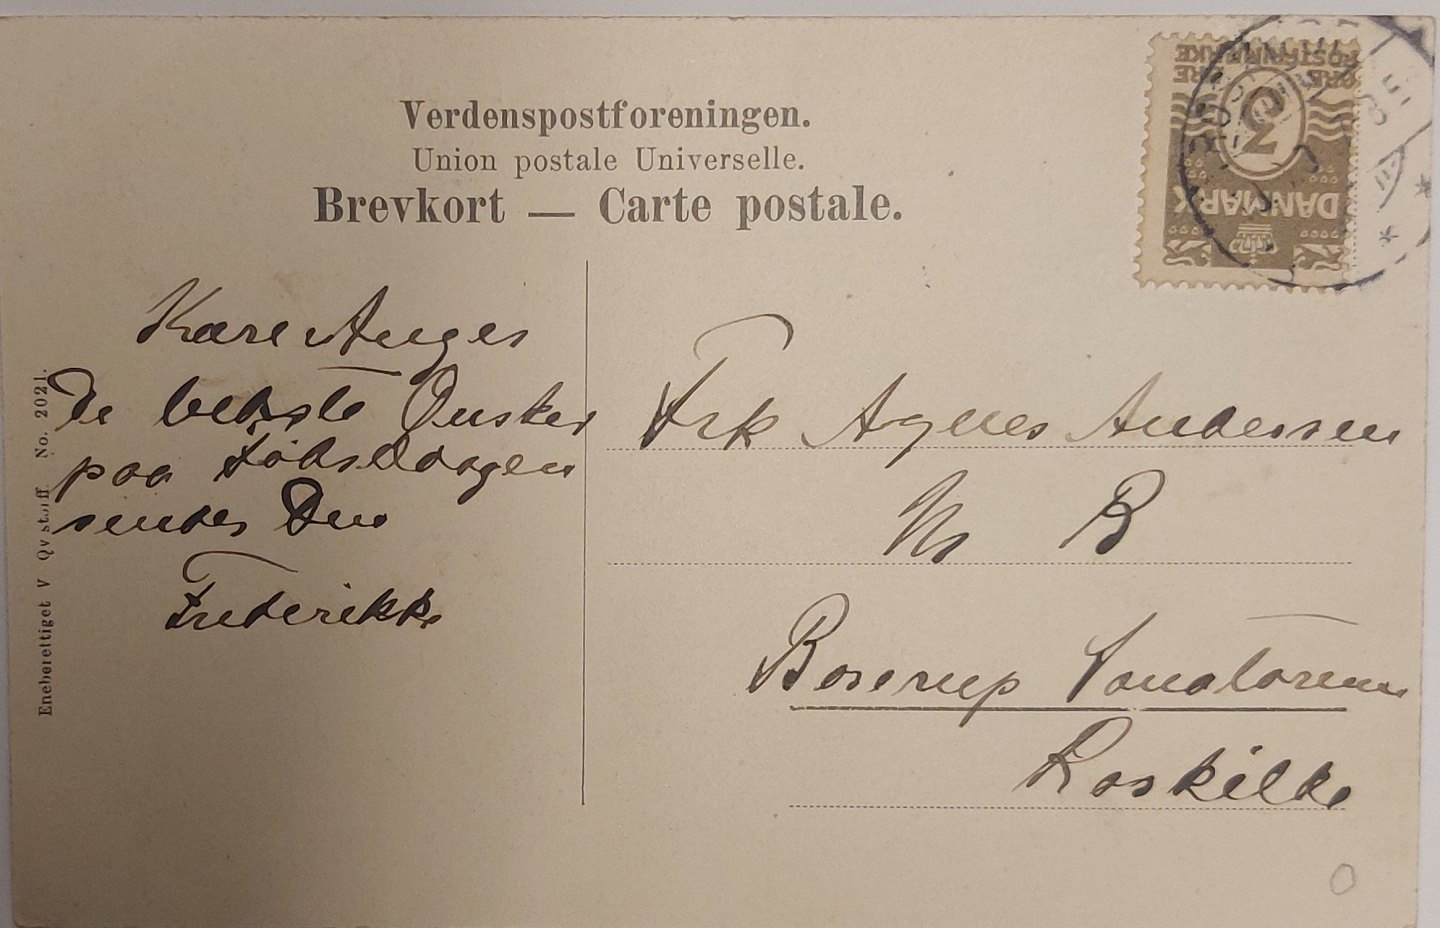 Verdenspostforeningen.
Union postale Universelle.
Brevkort — Carte postale.
POSTFRIMÆRKE
ØRE ØRE
3
DANMARK
Kære Agnes
De bedste Ønsker
paa Fødselsdagen
sendes Dem
Frederikke
Eneberettiget V No. 2021.
Frk Agnes Andersen
Nr B
Boserup Sanatorium
Roskilde